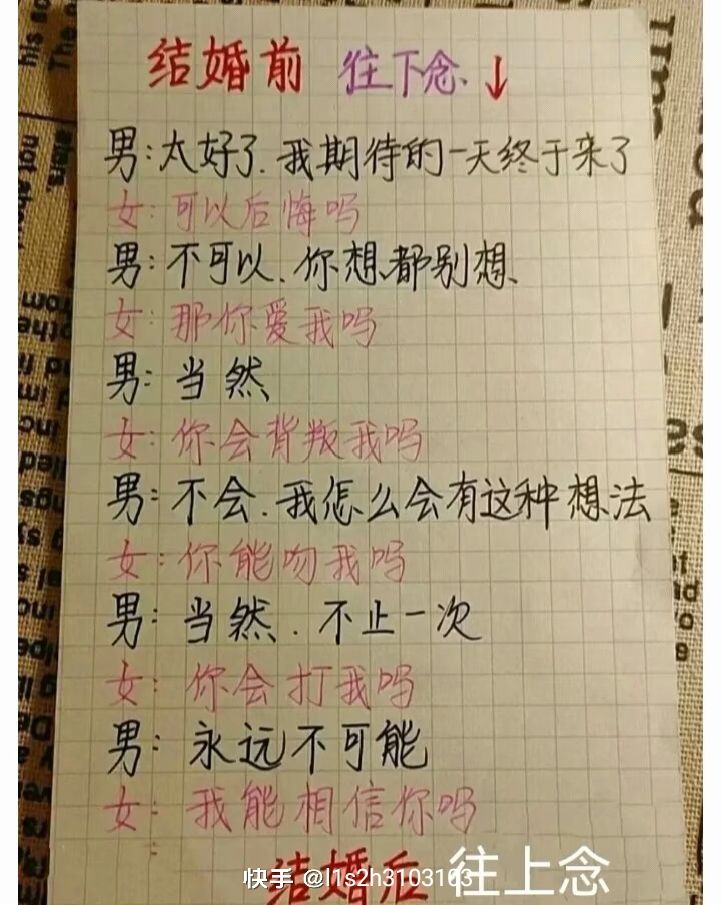 结婚前 往下念↓
男:太好了.我期待的一天终于来了
女:可以后悔吗
男:不可以.你想都别想.
女:那你爱我吗
男:当然
女:你会背叛我吗
男:不会.我怎么会有这种想法
女:你能吻我吗
男:当然.不止一次
女:你会打我吗
男:永远不可能
女:我能相信你吗
结婚后 往上念
快手 @l1s2h3103103